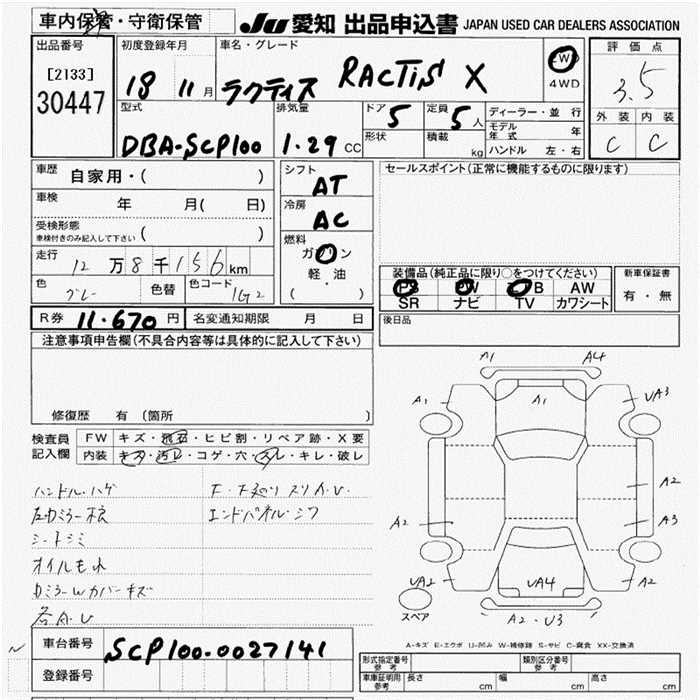 車内保管・守衛保管
JU 愛知 出品申込書 JAPAN USED CAR DEALERS ASSOCIATION
出品番号
[2133]
30447
初度登録年月
18 11月
車名・グレード
ラクティス RACTIS X
2WD
4WD
評価点
3.5
外装 内装
C C
型式
DBA-SCP100
排気量
1.29 CC
ドア 5
形状
定員 5人
積載 kg
ディーラー・並行
モデル年式 年
ハンドル 左・右
車歴
自家用・( )
車検
年 月( 日)
受検形態
車検付きのみ記入して下さい ( )
走行
12万8千156km
色
グレー
色替
色コード
1G2
シフト
AT
冷房
AC
燃料
ガソリン
軽・油
( )
セールスポイント(正常に機能するものに限ります)
装備品(純正品に限り〇をつけてください)
PS PW AB AW
SR ナビ TV カワシート
新車保証書
有・無
後日品
R券 11.670円 名変通知期限 月 日
注意事項申告欄(不具合内容等は具体的に記入して下さい)
修復歴 有(箇所 )
検査員
記入欄
FW キズ・飛石・ヒビ割・リペア跡・X要
内装 キズ・汚レ・コゲ・穴・スレ・キレ・破レ
ハンドル・ハゲ
シートシミ
オイルもれ
エンドパネル・シワ
A1 A4
A1 A1 UA3
A2
A2 A3
UA2 UA4 A2
A2・U3
スペア
A-キズ E-エクボ U-凹み W-補修跡 S-サビ C-腐食 XX-交換済
車台番号
SCP100-0027141
登録番号
形式指定番号 参考
類別区分番号 参考
車庫証明用 参考 長さ cm 幅 cm 高さ cm